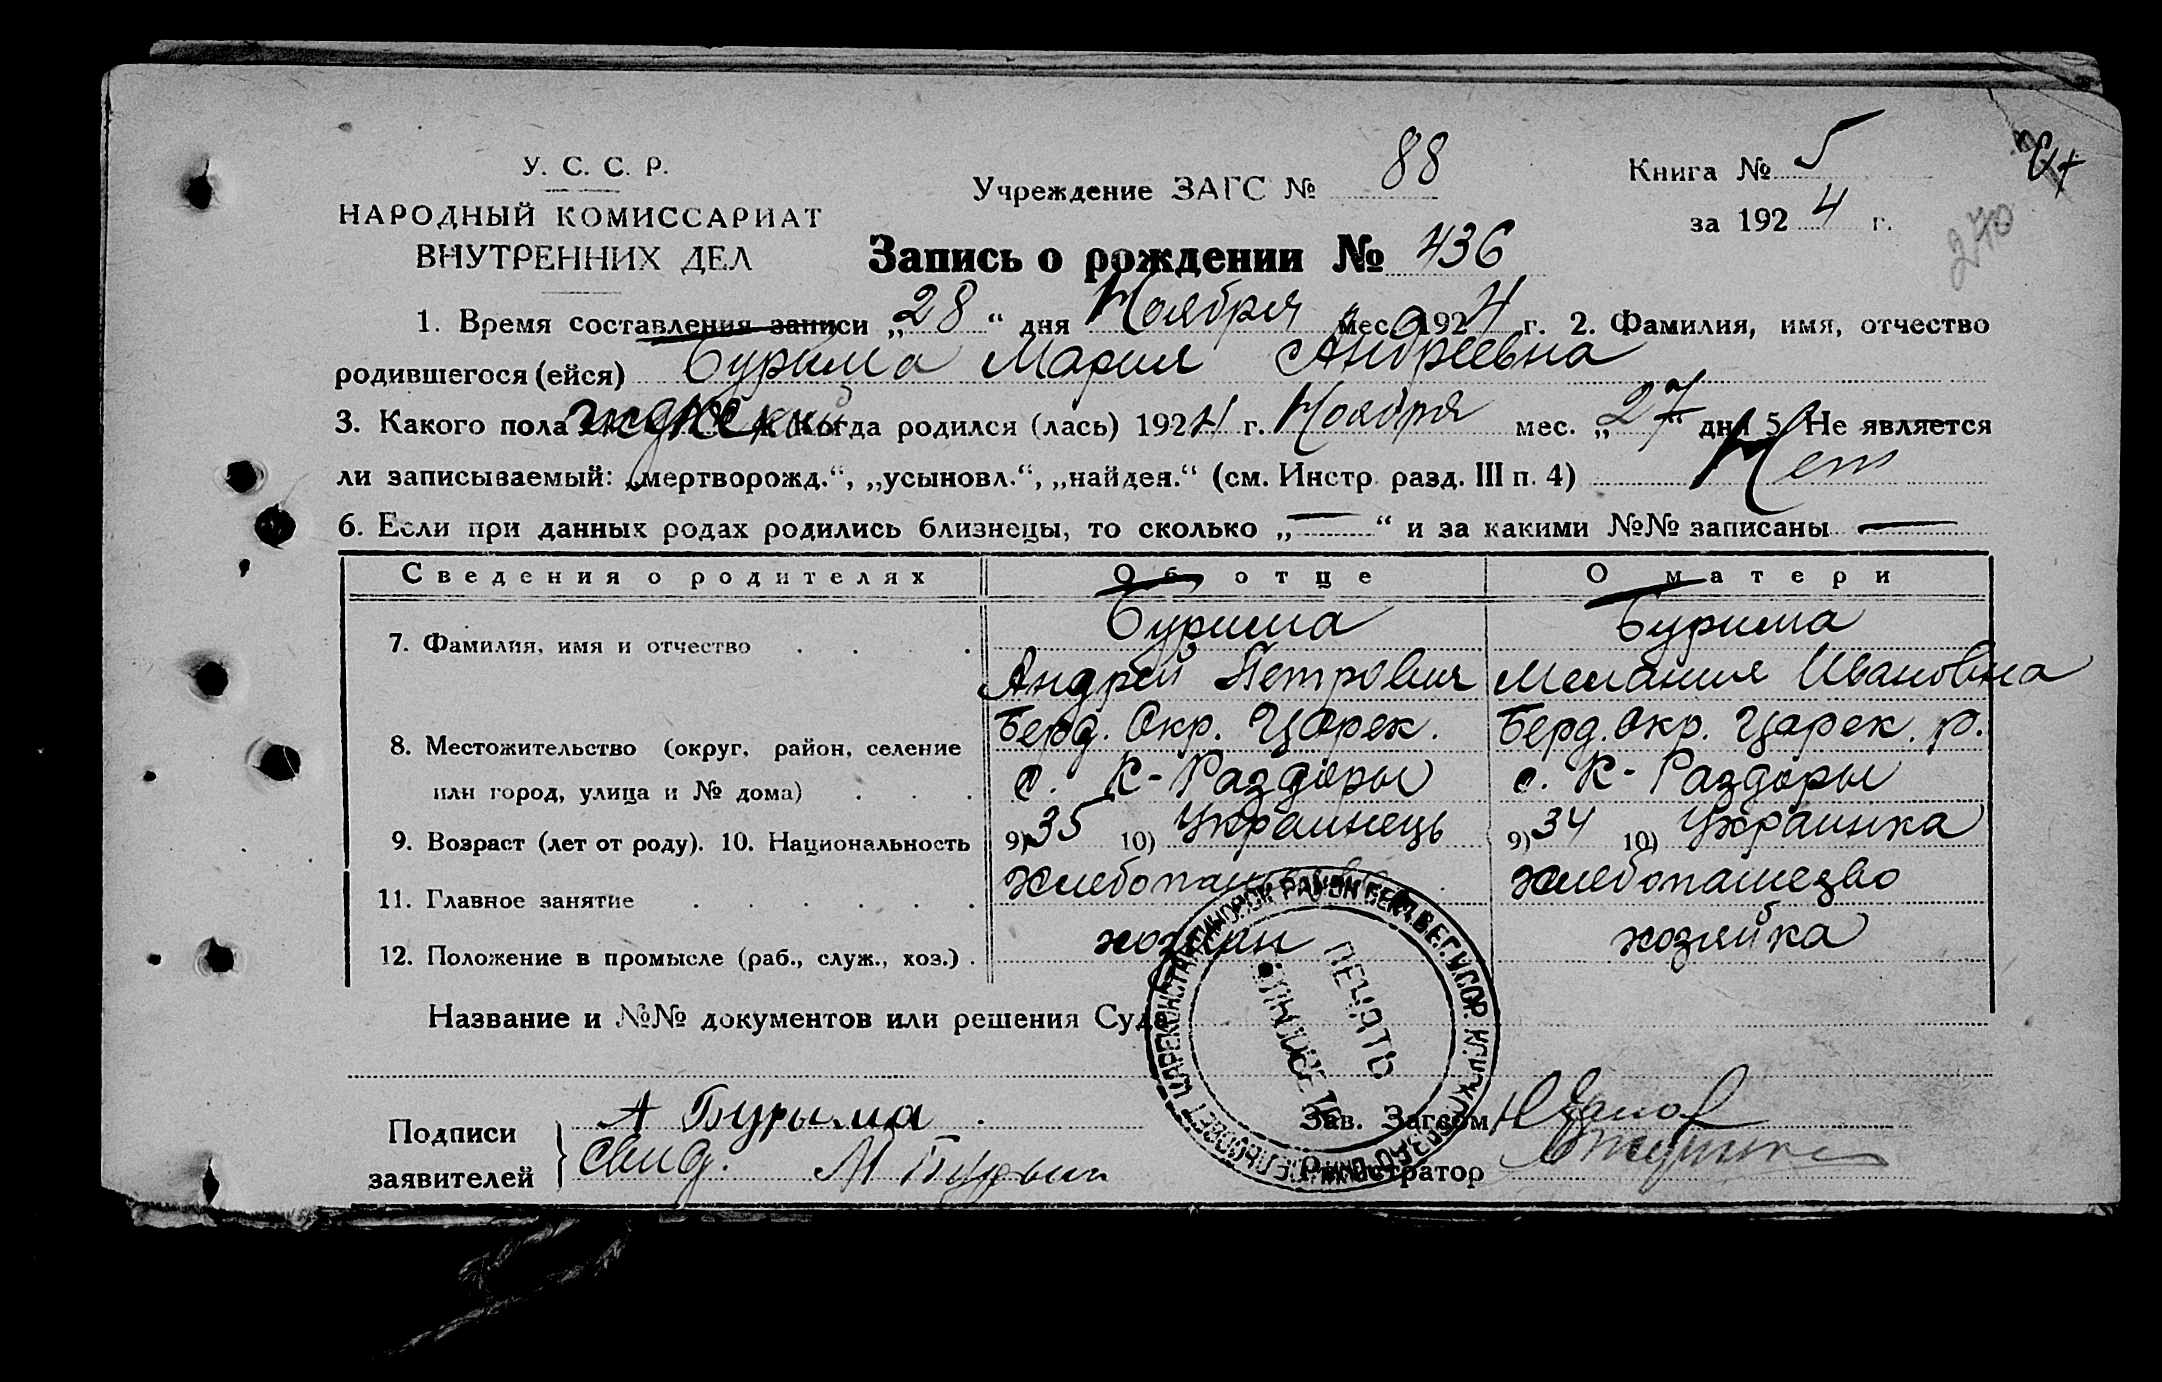 У. С. С. Р.
НАРОДНЫЙ КОМИССАРИАТ
ВНУТРЕННИХ ДЕЛ
Учреждение ЗАГС № 88
Книга № 5
за 1924 г.
270
Запись о рождении № 436
1. Время составления записи „28“ дня Ноября мес. 1924 г. 2. Фамилия, имя, отчество
родившегося (ейся) Бурима Мария Андреевна
3. Какого пола женский 4. Когда родился (лась) 1924 г. Ноября мес. „27“ дня 5. Не является
ли записываемый: „мертворожд.“, „усыновл.“, „найден.“ (см. Инстр. разд. III п. 4) Нет
6. Если при данных родах родились близнецы, то сколько „—“ и за какими №№ записаны —
Сведения о родителях Об отце О матери
7. Фамилия, имя и отчество Бурима Бурима
Андрей Петрович Мелания Ивановна
8. Местожительство (округ, район, селение Берд. Окр. Царек. Берд. Окр. Царек. р.
или город, улица и № дома) с. К-Раздоры с. К-Раздоры
9. Возраст (лет от роду). 10. Национальность 9) 35 10) Украинець 9) 34 10) Украинка
11. Главное занятие Хлебопашество Хлебопашество
12. Положение в промысле (раб., служ., хоз.) хозяин хозяйка
Название и №№ документов или решения Суда
ПЕЧАТЬ
Подписи
заявителей
А Бурыма
Свид. М
Зав. Загсом
Регистратор